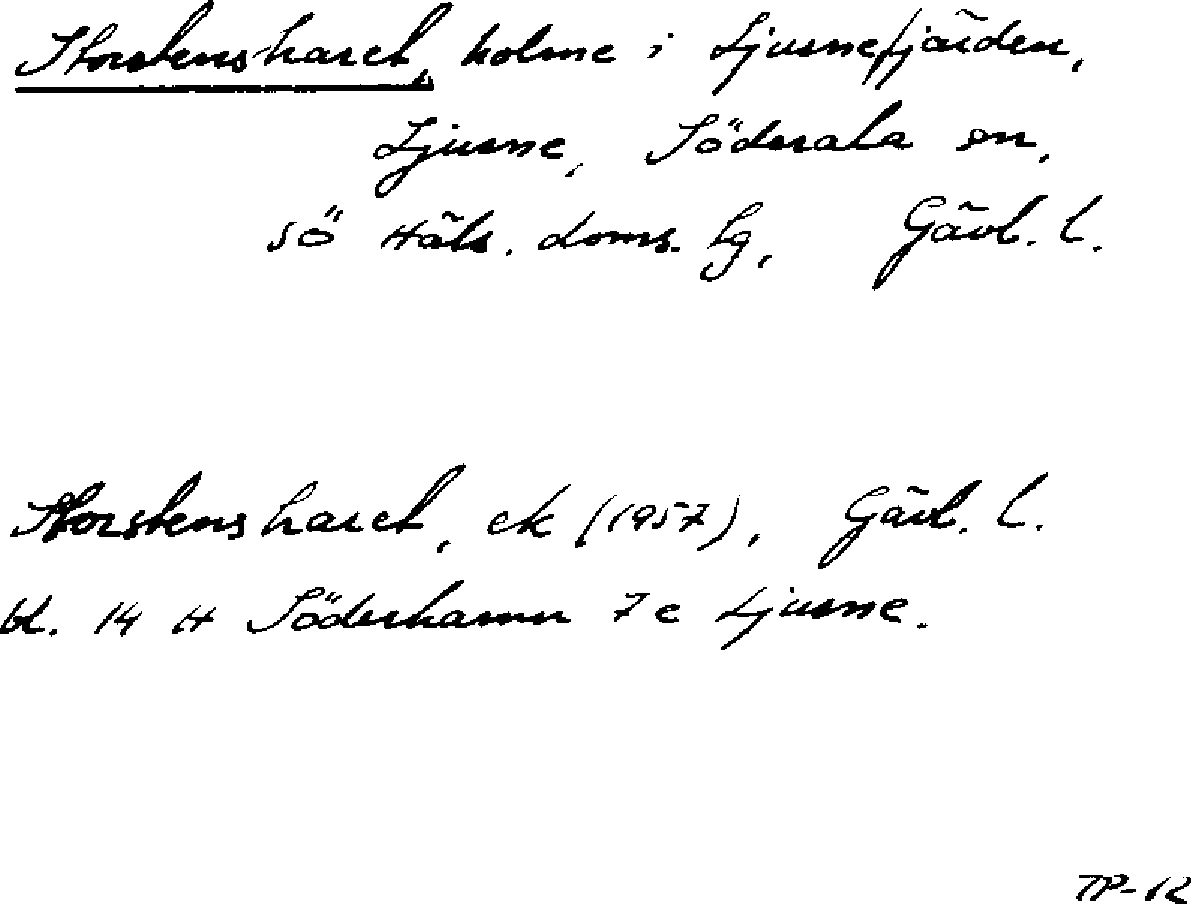 Storstensharet, holme i Ljusnefjärden,
Ljusne, Söderala sn,
sö Häls. doms. lg, Gävl. l.
Storstensharet, ek (1957), Gävl. l.
bl. 14 H Söderhamn 7 e Ljusne.
TP-12